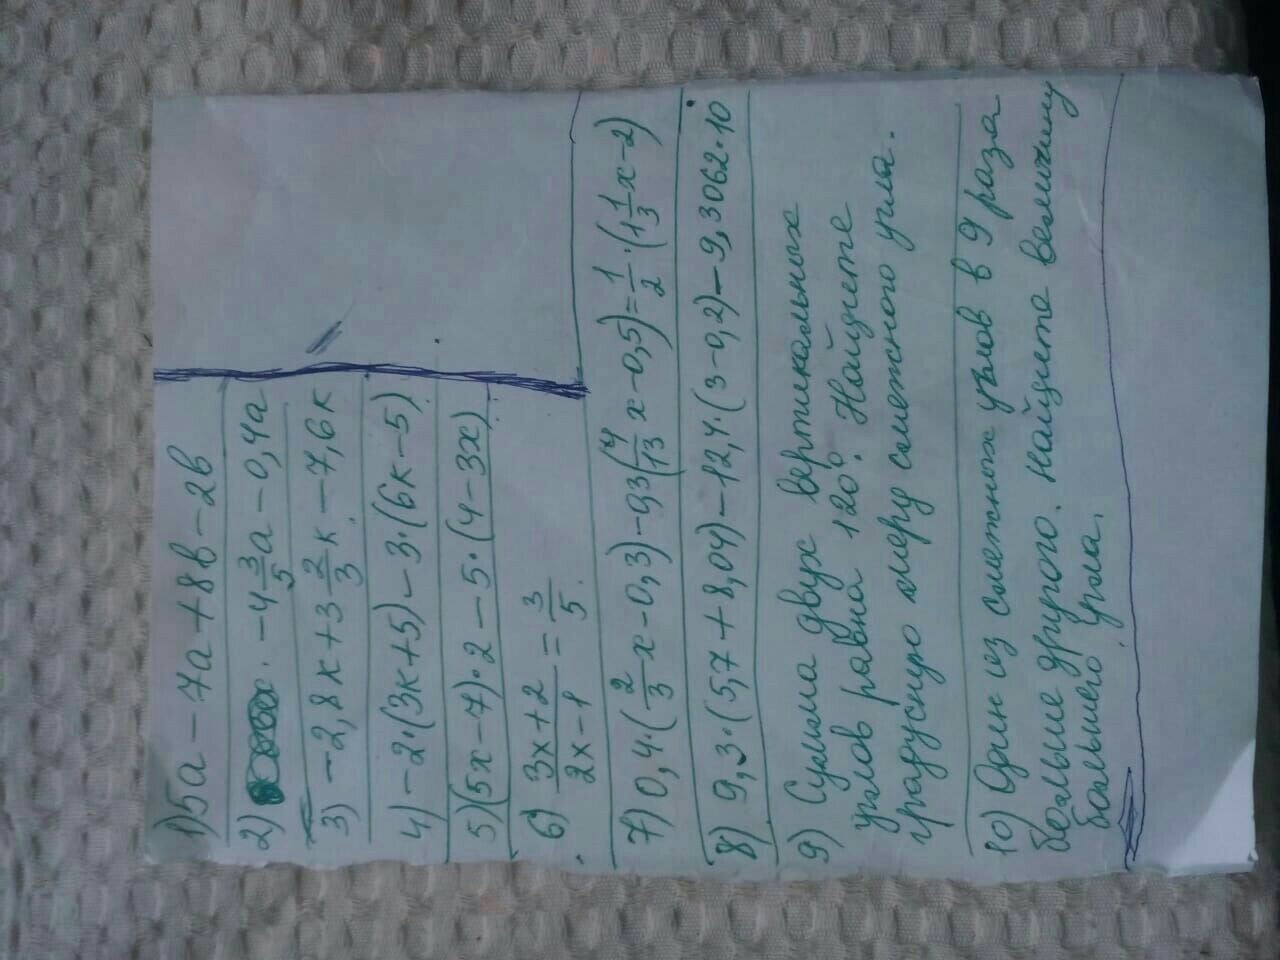 1) 5а − 7а + 8в − 2в
2) − 4 3/5 а − 0,4а
3) − 2,8к + 3 2/3 к − 7,6к
4) − 2·(3к+5) − 3·(6к−5)
5) (5х−7)·2 − 5·(4−3х)
6) (3х+2)/(2х−1) = 3/5
7) 0,4·(2/3 х − 0,3) − 0,3(4/13 х − 0,5) = 1/2·(1 1/3 х − 2)
8) 9,3·(5,7+8,04) − 12,4·(3−0,2) − 9,3062·10
9) Сумма двух вертикальных
углов равна 120°. Найдите
градусную меру смежного угла.
10) Один из смежных углов в 9 раза
больше другого. Найдите величину
большего угла.